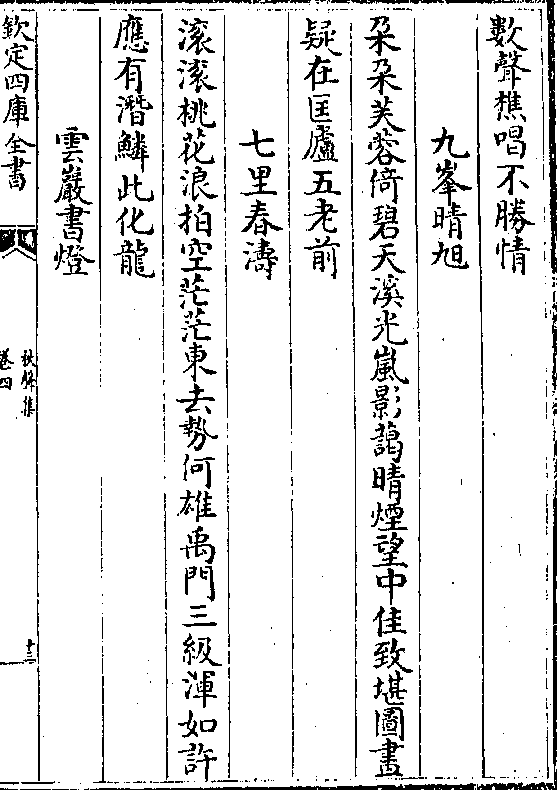 數聲樵唱不勝情
九峯晴旭
朶朶芙蓉倚碧天溪光嵐影藹晴煙望中佳致堪圖畫
疑在匡廬五老前
七里春濤
滚滚桃花浪拍空茫茫東去勢何雄禹門三級渾如許
應有潛鱗此化龍
雲巖書燈
欽定四庫全書
秋聲集
卷四
十三